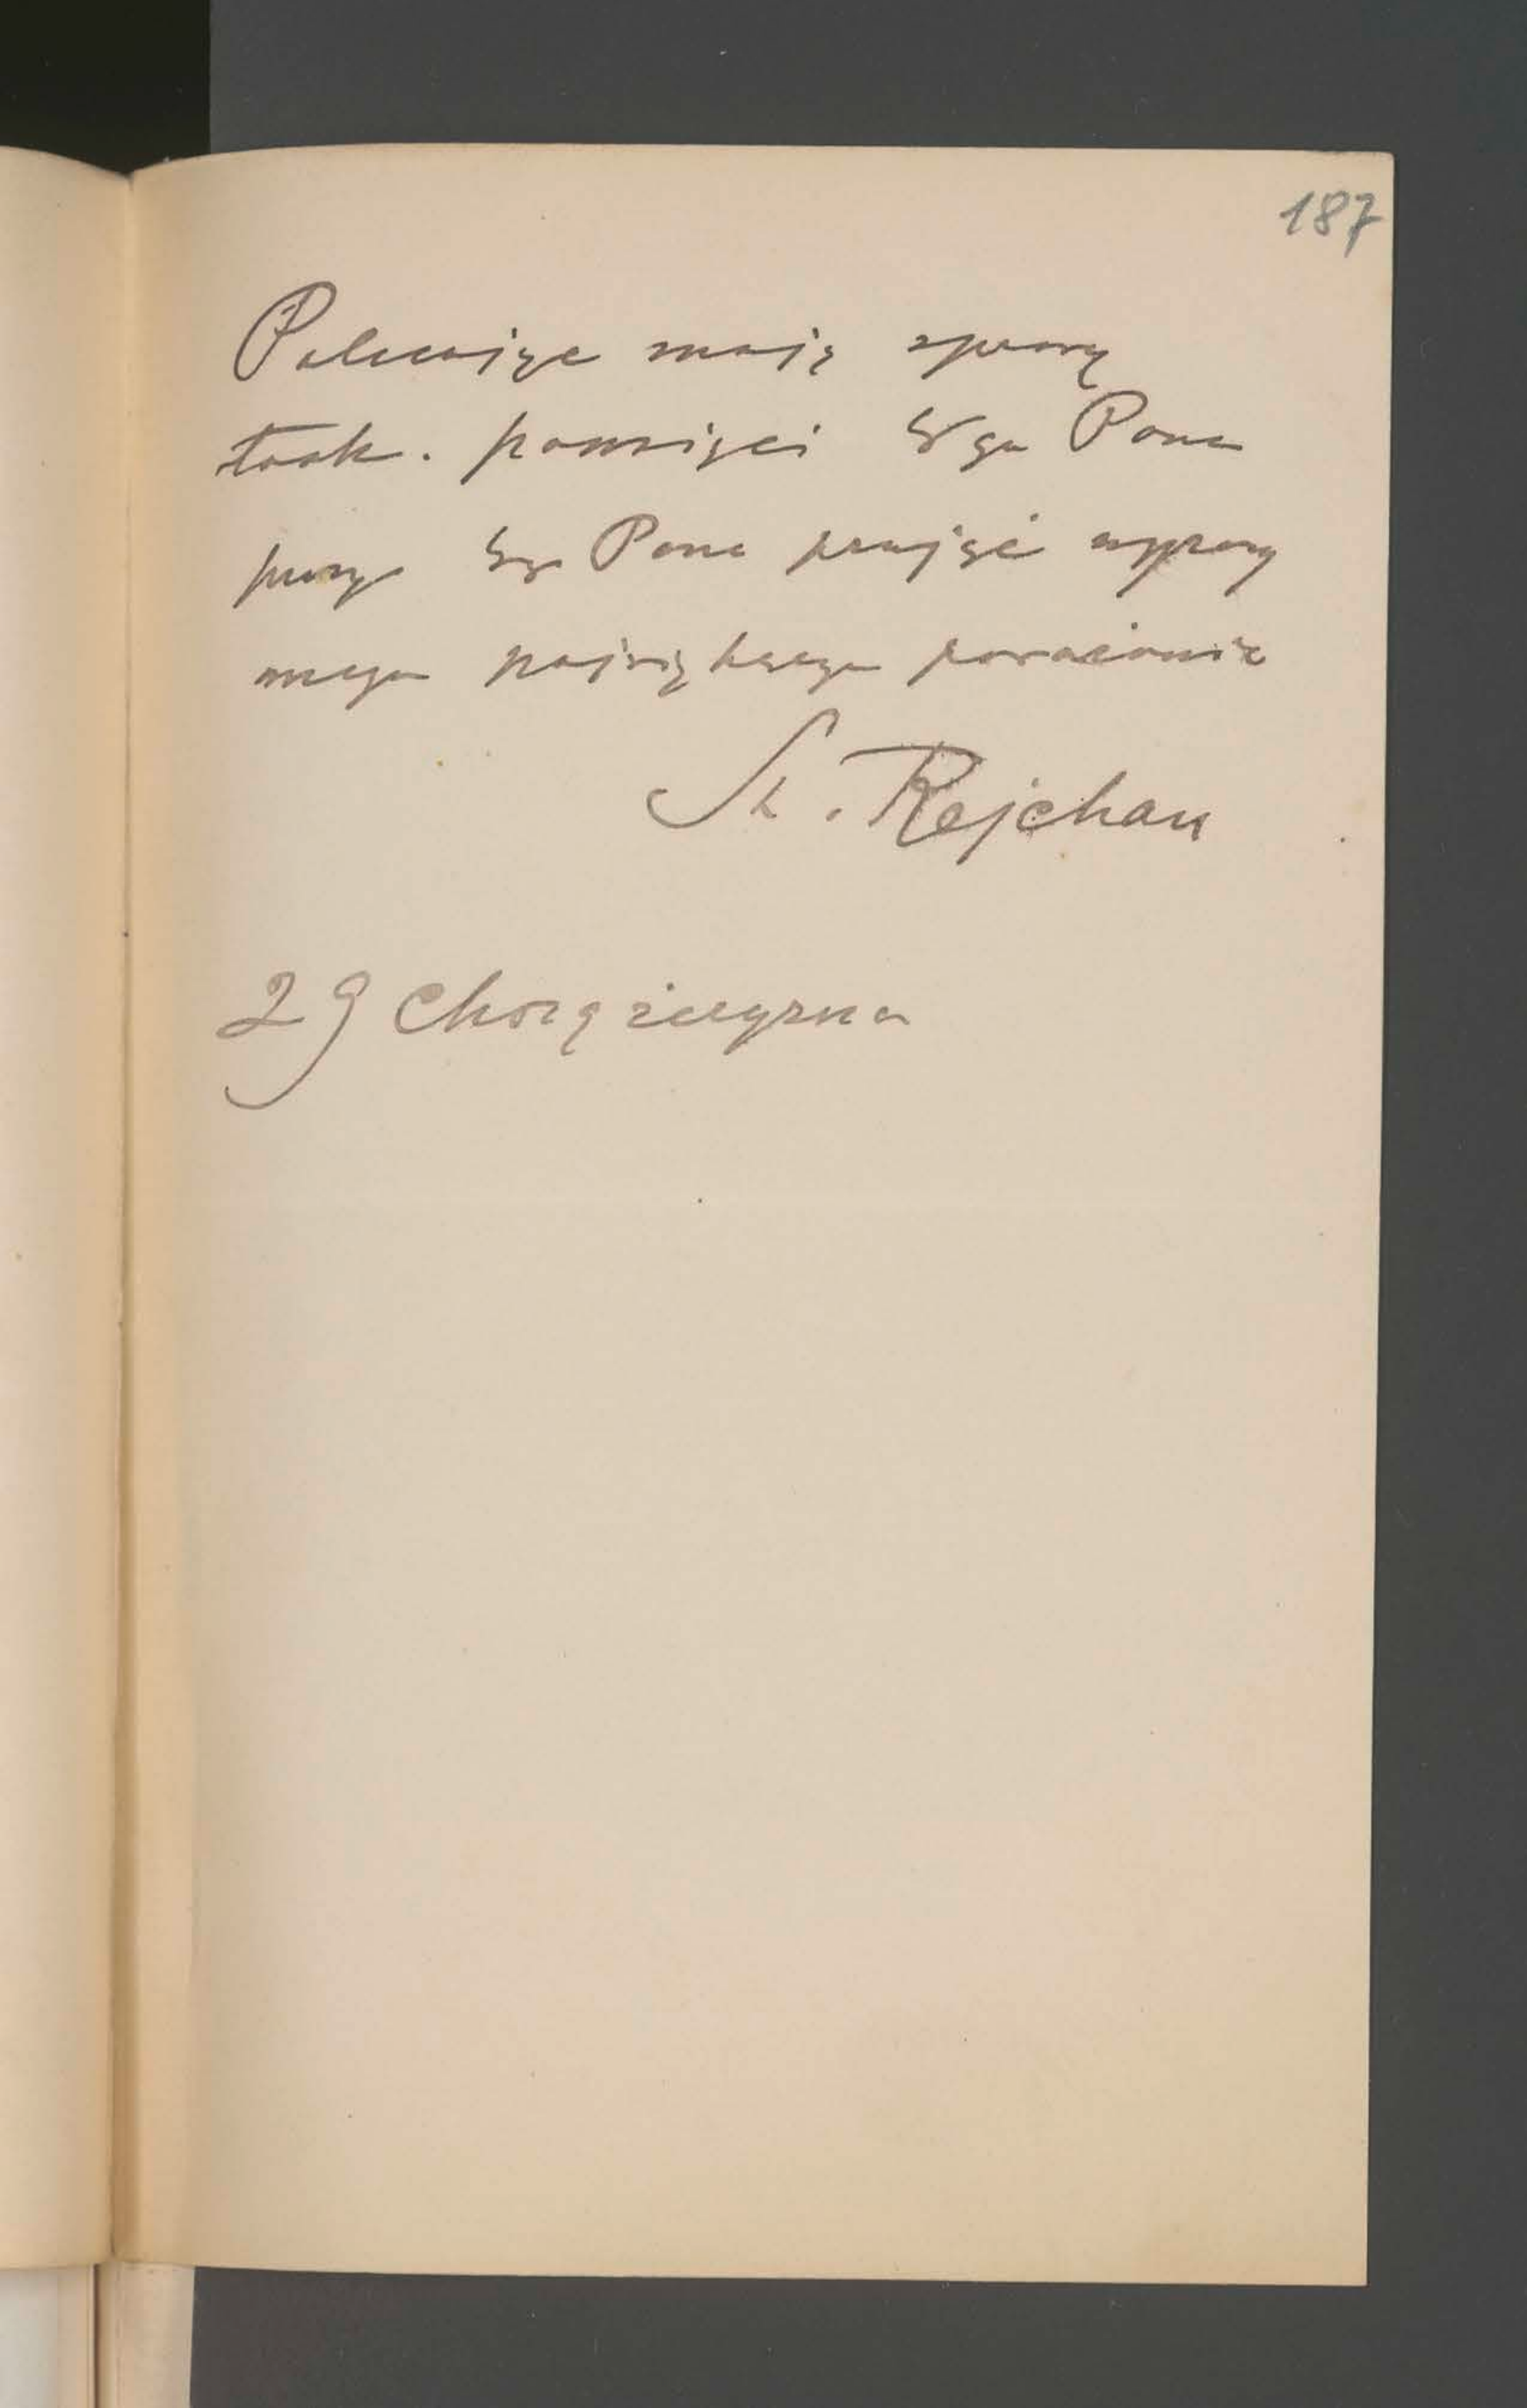 187
Polecając moją sprawę
łask. pamięci Wgo Pana
proszę Wgo Pana przyjąć wyrazy
mego największego poważania
St. Rejchan
29 Chorążczyzna